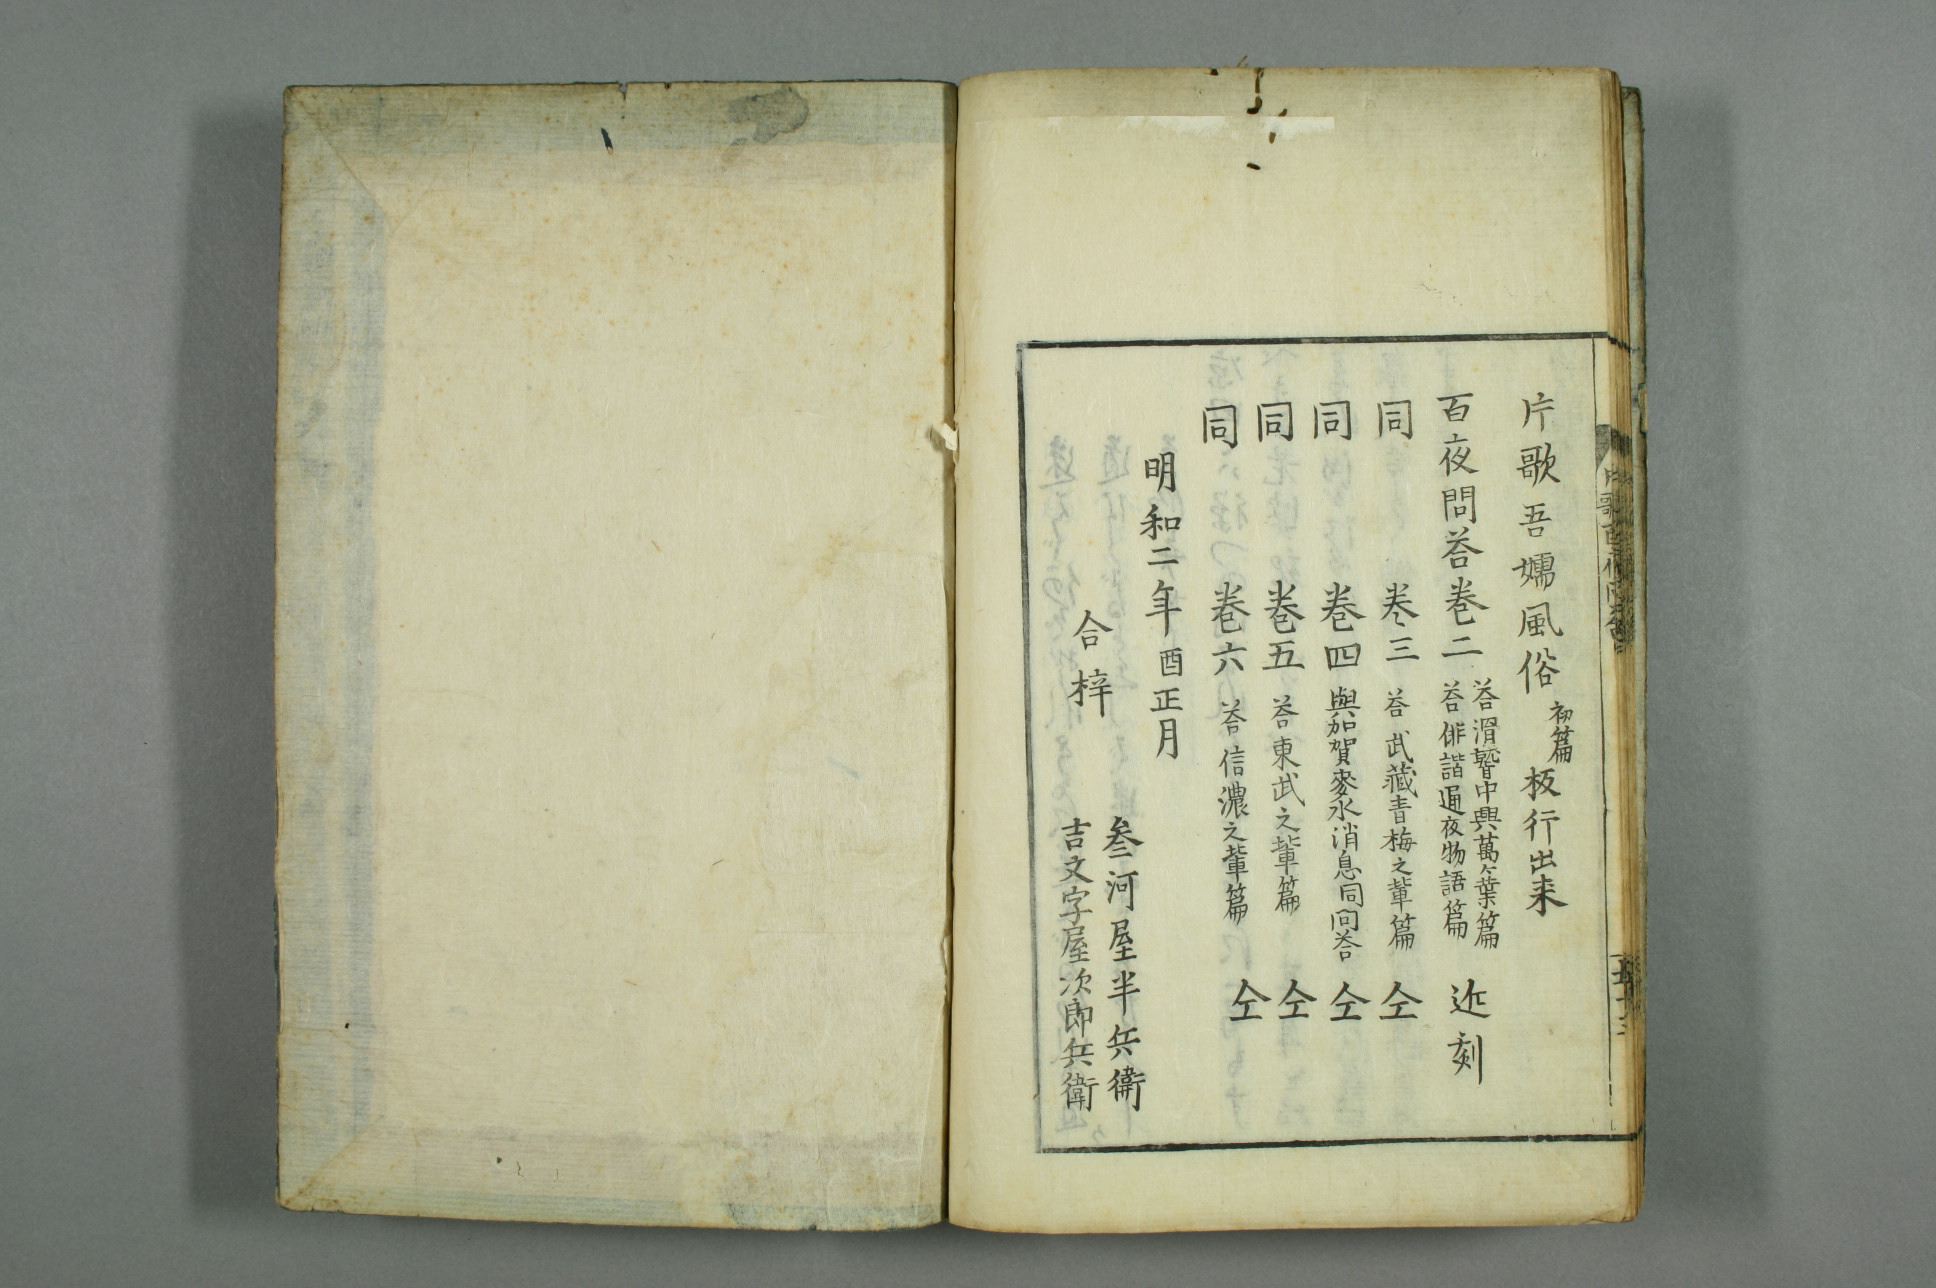 片歌吾嬬風俗 初篇 板行出来
百夜問荅巻二 荅滑稽中興萬葉篇
荅俳諧逼夜物語篇 近刻
同 巻三 荅武藏青梅之輩篇 仝
同 巻四 與加賀麥水消息同問荅 仝
同 巻五 荅東武之輩篇 仝
同 巻六 荅信濃之輩篇 仝
明和二年酉正月
合梓
叄河屋半兵衛
吉文字屋次郎兵衛
片歌百夜問荅